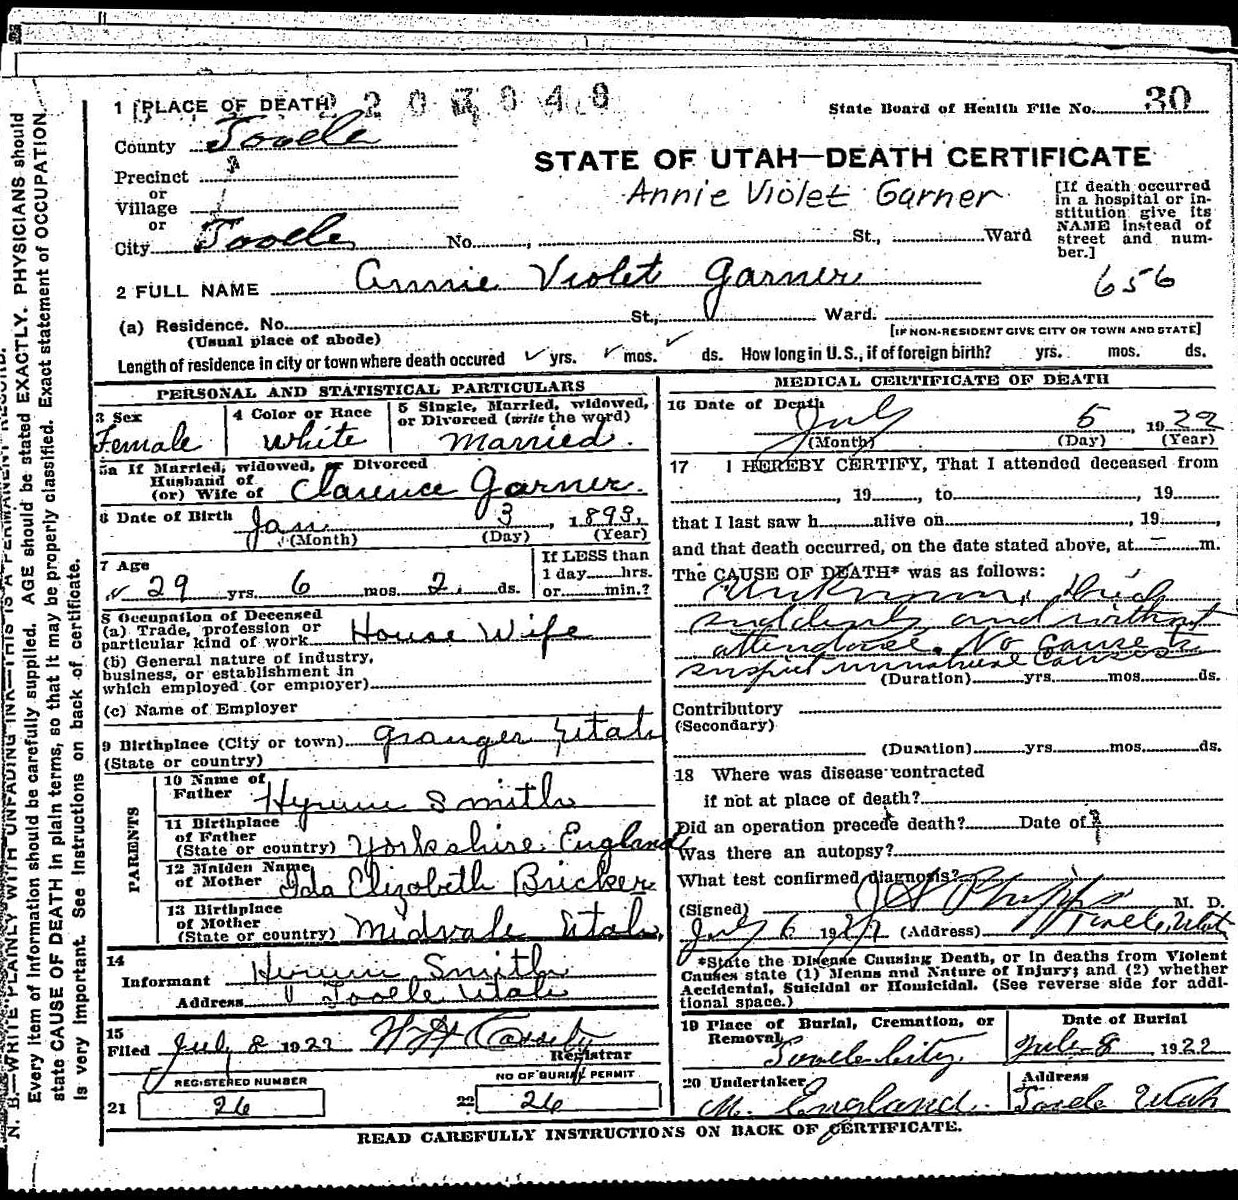 N. B.—WRITE PLAINLY WITH UNFADING INK—THIS IS A PERMANENT RECORD.
Every item of Information should be carefully supplied. AGE should be stated EXACTLY. PHYSICIANS should
state CAUSE OF DEATH in plain terms, so that it may be properly classified. Exact statement of OCCUPATION
is very important. See Instructions on back of certificate.
State Board of Health File No. 30
1 PLACE OF DEATH
County Tooele
STATE OF UTAH—DEATH CERTIFICATE
Precinct 3
or
Village
or
City Tooele No. , St., Ward
Annie Violet Garner
[If death occurred
in a hospital or in-
stitution give its
NAME instead of
street and num-
ber.]
2 FULL NAME Annie Violet Garner
656
(a) Residence. No. St., Ward.
(Usual place of abode)
[IF NON-RESIDENT GIVE CITY OR TOWN AND STATE]
Length of residence in city or town where death occured yrs. mos. ds. How long in U.S., if of foreign birth? yrs. mos. ds.
PERSONAL AND STATISTICAL PARTICULARS
3 Sex
Female
4 Color or Race
White
5 Single, Married, widowed,
or Divorced (write the word)
Married.
5a If Married, widowed, or Divorced
Husband of
(or) Wife of Clarence Garner.
6 Date of Birth Jan 3, 1893.
(Month) (Day) (Year)
7 Age
29 yrs. 6 mos. 2. ds.
If LESS than
1 day hrs.
or min.?
8 Occupation of Deceased
(a) Trade, profession or
particular kind of work House Wife
(b) General nature of industry,
business, or establishment in
which employed (or employer)
(c) Name of Employer
9 Birthplace (City or town) Granger Utah
(State or country)
PARENTS
10 Name of
Father Hyrum Smith
11 Birthplace
of Father
(State or country) Yorkshire England
12 Maiden Name
of Mother Ida Elizabeth Bricker
13 Birthplace
of Mother
(State or country) Midvale Utah,
14
Informant Hyrum Smith
Address Tooele Utah
15
Filed July 8 1922
Registrar
REGISTERED NUMBER
21 26
NO OF BURIAL PERMIT
22 26
MEDICAL CERTIFICATE OF DEATH
16 Date of Death
July 5, 1922
(Month) (Day) (Year)
17 I HEREBY CERTIFY, That I attended deceased from
, 19 , to , 19
that I last saw h alive on , 19 ,
and that death occurred, on the date stated above, at m.
The CAUSE OF DEATH* was as follows:
Unknown, Died
suddenly and without
attendance. No cause to
suspect unnatural causes
(Duration) yrs. mos. ds.
Contributory
(Secondary)
(Duration) yrs. mos. ds.
18 Where was disease contracted
if not at place of death?
Did an operation precede death? Date of
Was there an autopsy?
What test confirmed diagnosis?
(Signed) Phipps M. D.
July 6 1922 (Address) Tooele, Utah
*State the Disease Causing Death, or in deaths from Violent
Causes state (1) Means and Nature of Injury; and (2) whether
Accidental, Suicidal or Homicidal. (See reverse side for addi-
tional space.)
19 Place of Burial, Cremation, or
Removal
Tooele City.
Date of Burial
July 8 1922
20 Undertaker
M. England.
Address
Tooele Utah
READ CAREFULLY INSTRUCTIONS ON BACK OF CERTIFICATE.